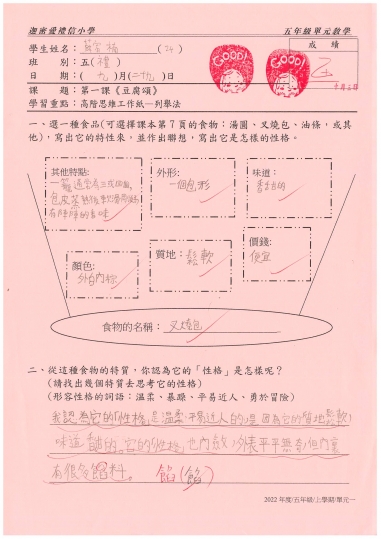 迦密愛禮信小學 五年級單元教學
學生姓名：(24) 成績
班 別：五(禮)
日 期：(九)月(二十九)日
課 題：第一課《豆腐頌》
學習重點：高階思維工作紙—列舉法
GOOD! GOOD!
一、選一種食品(可選擇課本第7頁的食物：湯圓、叉燒包、油條，或其
他)，寫出它的特性來，並作出聯想，寫出它是怎樣的性格。
其他特點:
一籠通常有三或四個，
包皮蒸
有陣陣的香味
外形:
一個包形
味道:
香甜的
顏色:
外白內棕
質地：鬆軟
價錢:
便宜
食物的名稱：叉燒包
二、從這種食物的特質，你認為它的「性格」是怎樣呢？
(請找出幾個特質去思考它的性格)
(形容性格的詞語：溫柔、暴躁、平易近人、勇於冒險)
我認為它的「性格」是溫柔、平易近人的，是因為它的質地鬆軟，
味道甜的。它的性格也內敛，外表平平無奇，但內裏
有很多餡料。 餡(餡)
2022年度/五年級/上學期/單元一